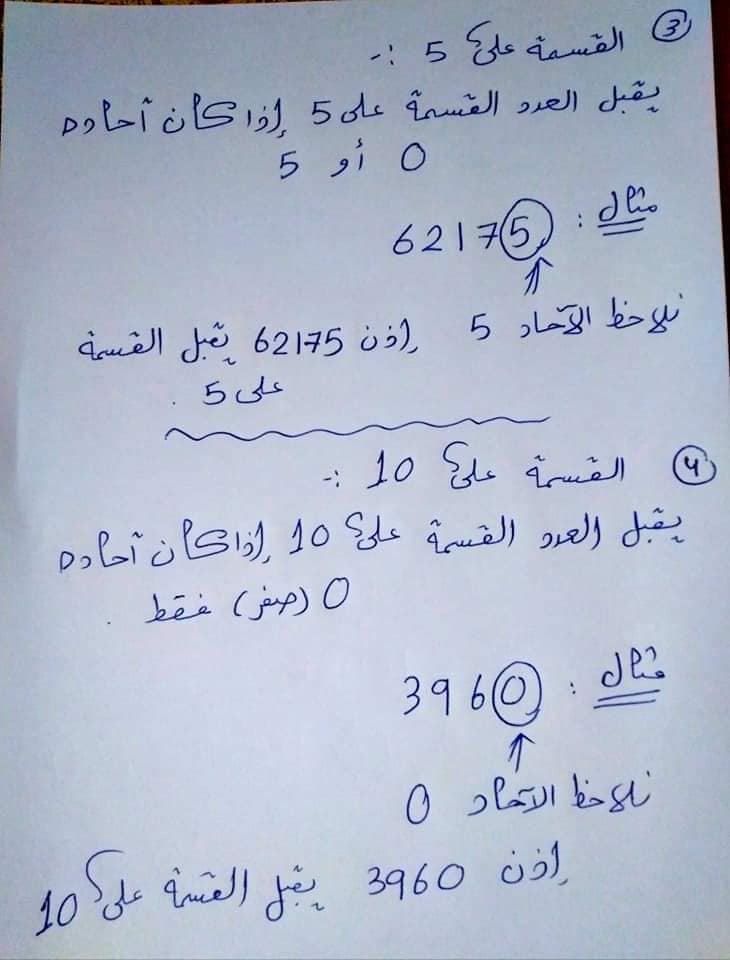 ③ القسمة على 5 :-
يقبل العدد القسمة على 5 إذا كان آحاده
0 أو 5
مثال : 62175
نلاحظ الآحاد 5 إذن 62175 يقبل القسمة
على 5 .
④ القسمة على 10 :-
يقبل العدد القسمة على 10 إذا كان آحاده
0 (صفر) فقط .
مثال : 3960
نلاحظ الآحاد 0
إذن 3960 يقبل القسمة على 10